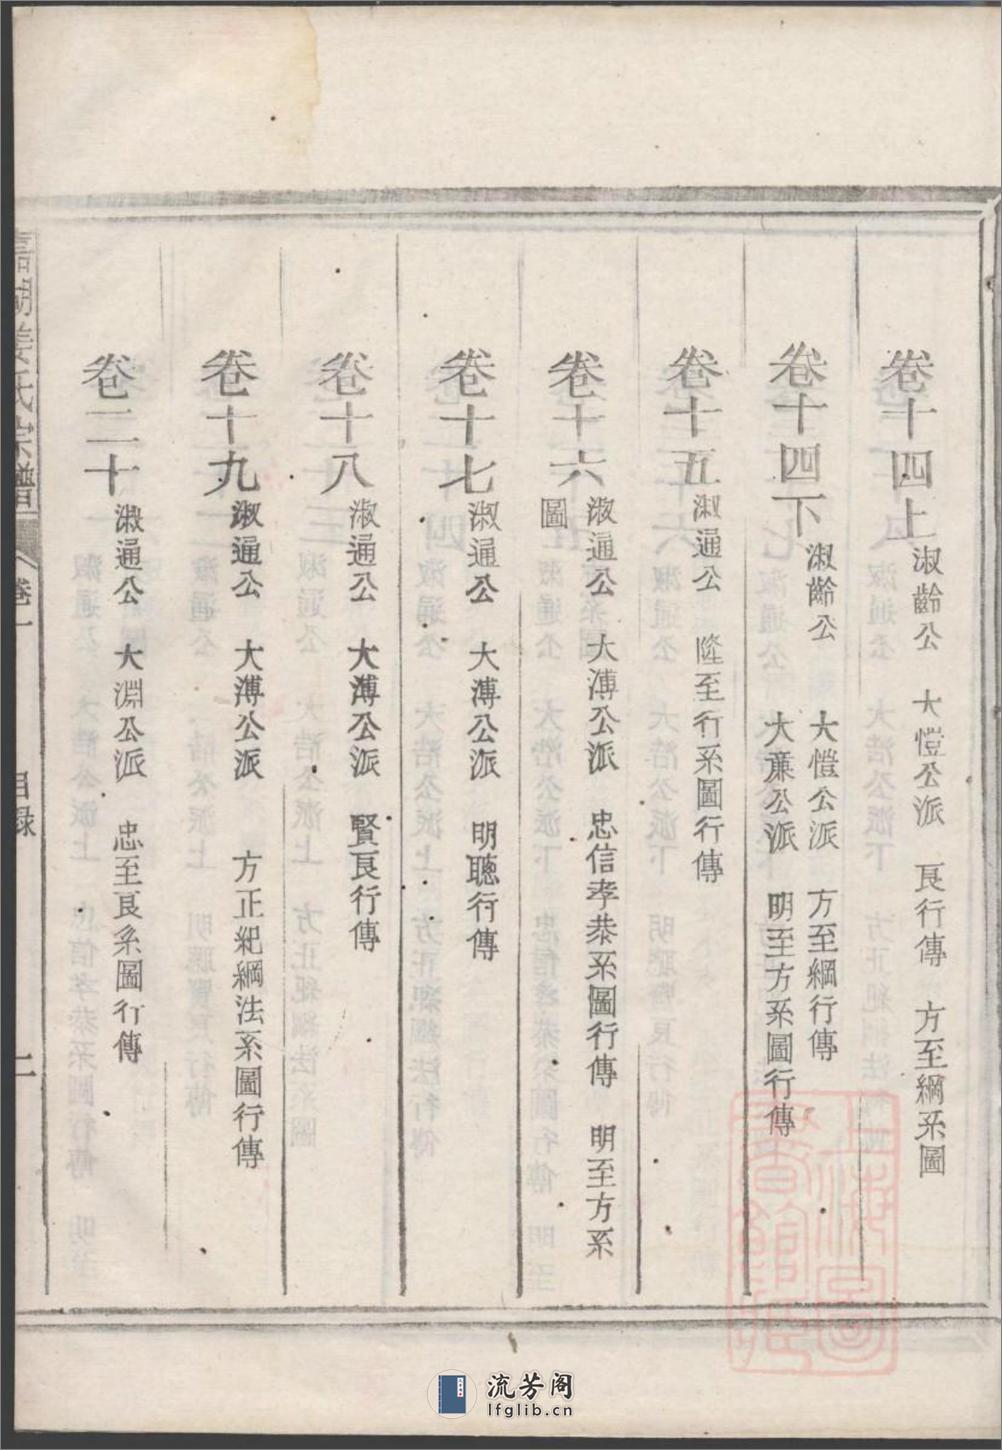 卷十四上 淑齡公 大愷公派 良行傳 方至綱系圖
卷十四下 淑齡公 大愷公派 方至綱行傳
大薰公派 明至方系圖行傳
卷十五 淑通公 隆至行系圖行傳
卷十六 淑通公 大溥公派 忠信孝恭系圖行傳 明至方系
圖
卷十七 淑通公 大溥公派 明聰行傳
卷十八 淑通公 大溥公派 賢良行傳
卷十九 淑通公 大溥公派 方正紀綱法系圖行傳
卷二十 淑通公 大淵公派 忠至良系圖行傳
湖姜氏宗譜 卷一 目録 二
流芳阁
lfglib.cn